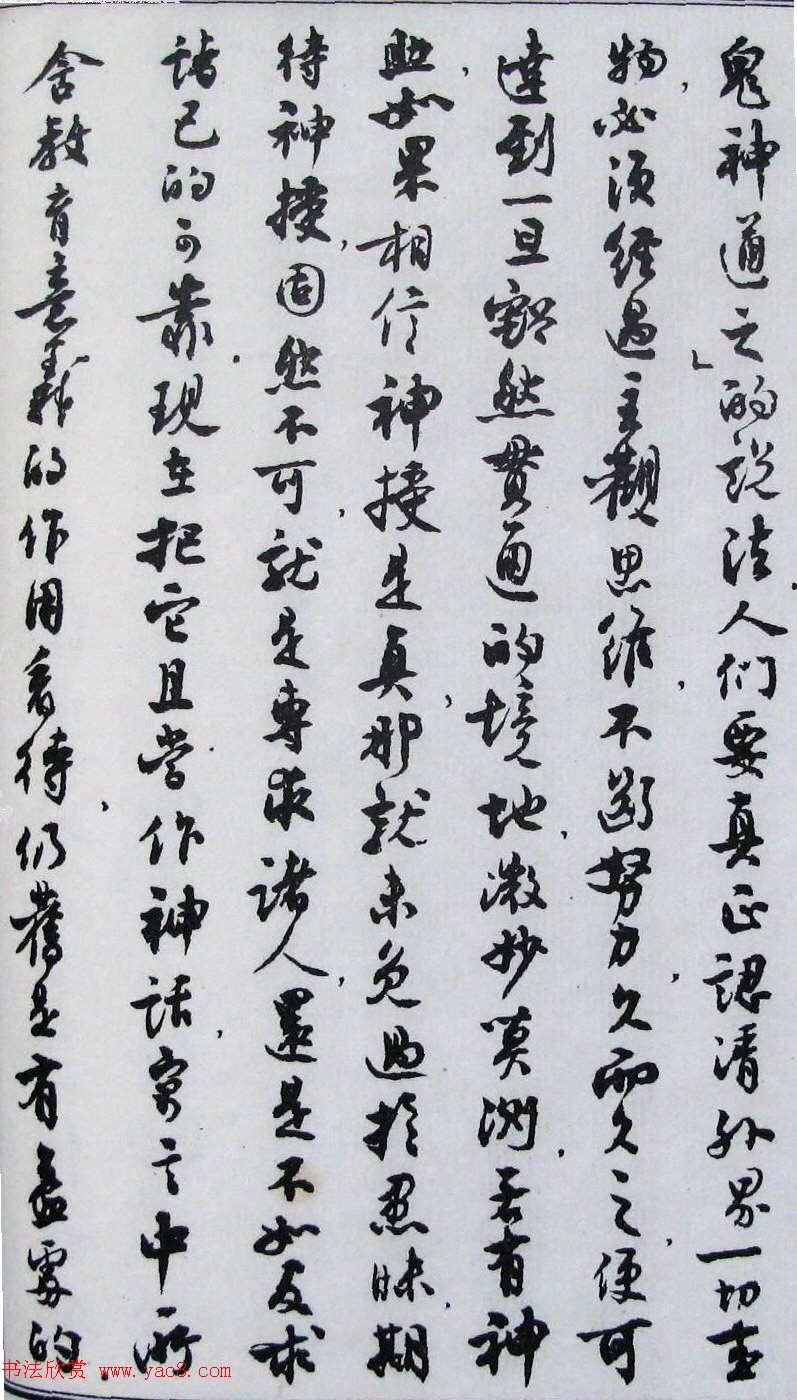 鬼神通之」的說法。人們要真正認清外界一切事
物，必須經過主觀思維，不斷努力，久而久之，便可
達到一旦豁然貫通的境地，微妙莫測，若有神
助，如果相信神授是真，那就未免過於愚昧，期
待神授，固然不可，就是專求諸人，還是不如反求
諸己的可靠。現在把它且當作神話寓言中所
含教育意義的作用看待，仍舊是有益處的。
书法欣赏 www.yac8.com